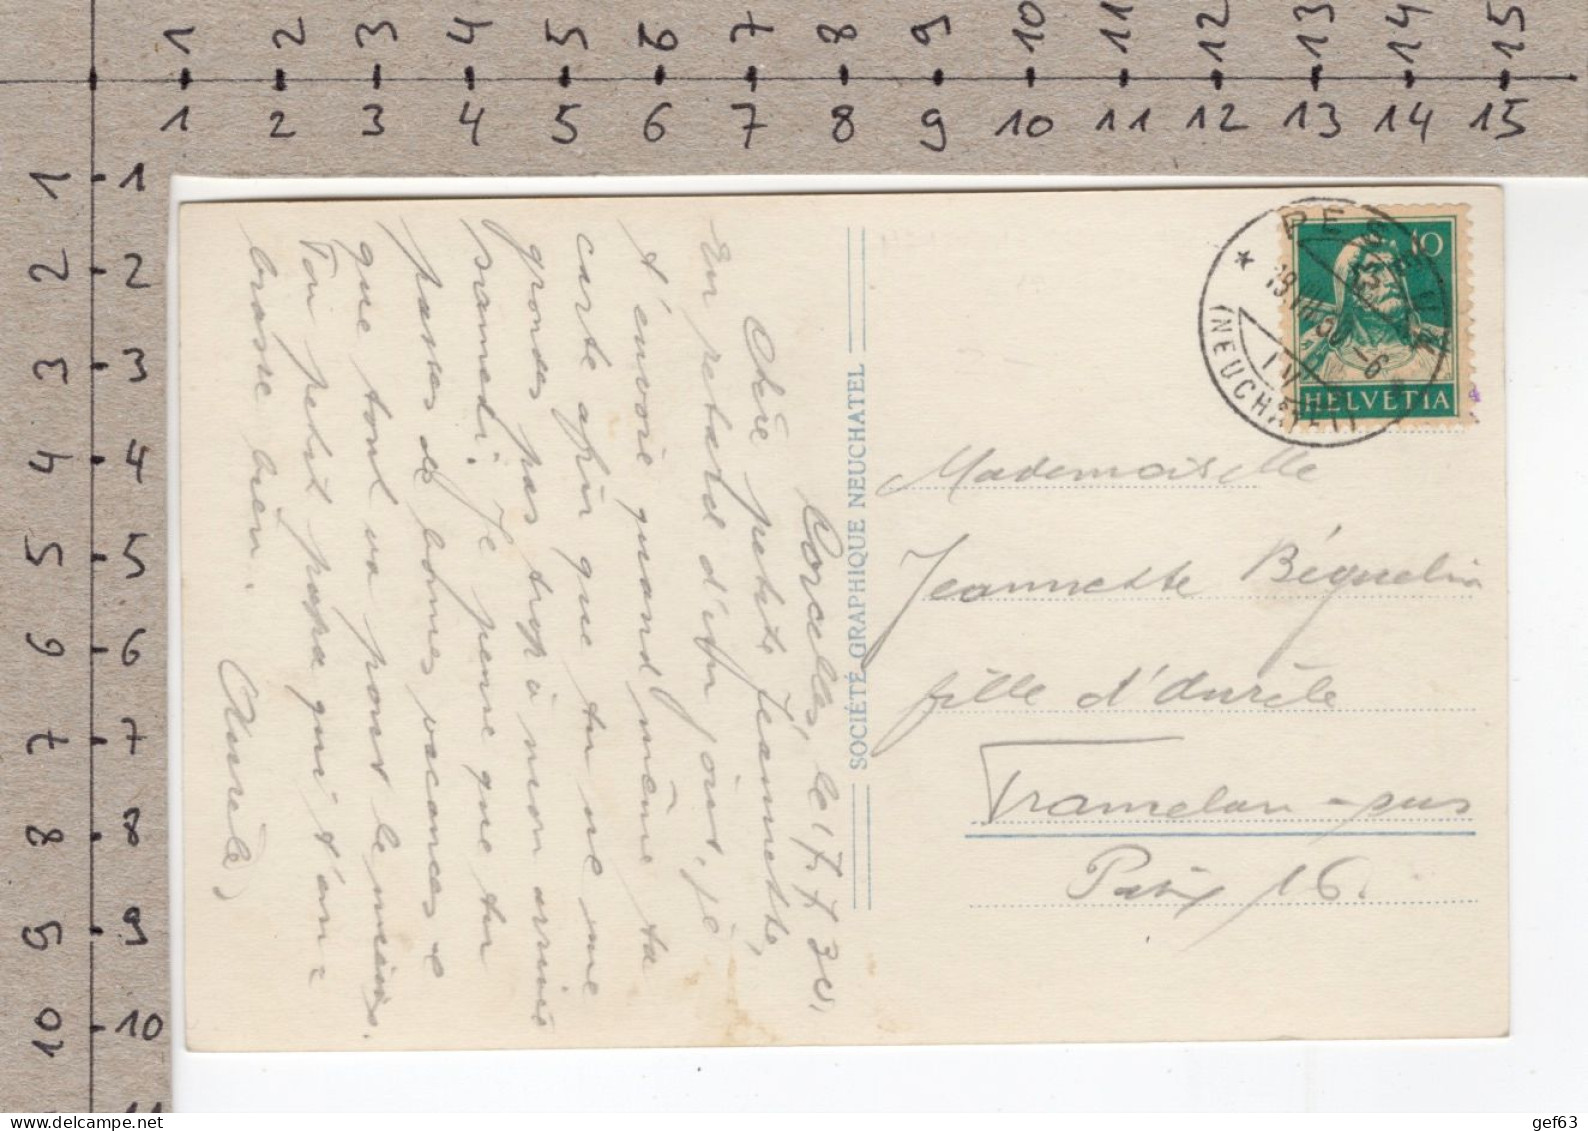 1 2 3 4 5 6 7 8 9 10 11 12 13 14 15
1 2 3 4 5 6 7 8 9 10 11 12 13 14 15
1 1
2 2
3 3
4 4
5 5
6 6
7 7
8 8
9 9
10 10
11
Corcelles, le 17.7.30.
Chère petite Jeannette,
En retard d'un jour, je
t'envoie quand même ta
carte afin que tu ne me
grondes pas trop à mon arrivée
samedi. Je pense que tu
passes de bonnes vacances e
que tout va pour le mieux.
Ton petit papa qui t'em-
brasse bien.
Aurèle
SOCIÉTÉ GRAPHIQUE NEUCHATEL
10
HELVETIA
(NEUCHÂTEL)
IV
Mademoiselle
Jeannette Béguelin
fille d'Aurèle
Tramelan-
16.
gef63